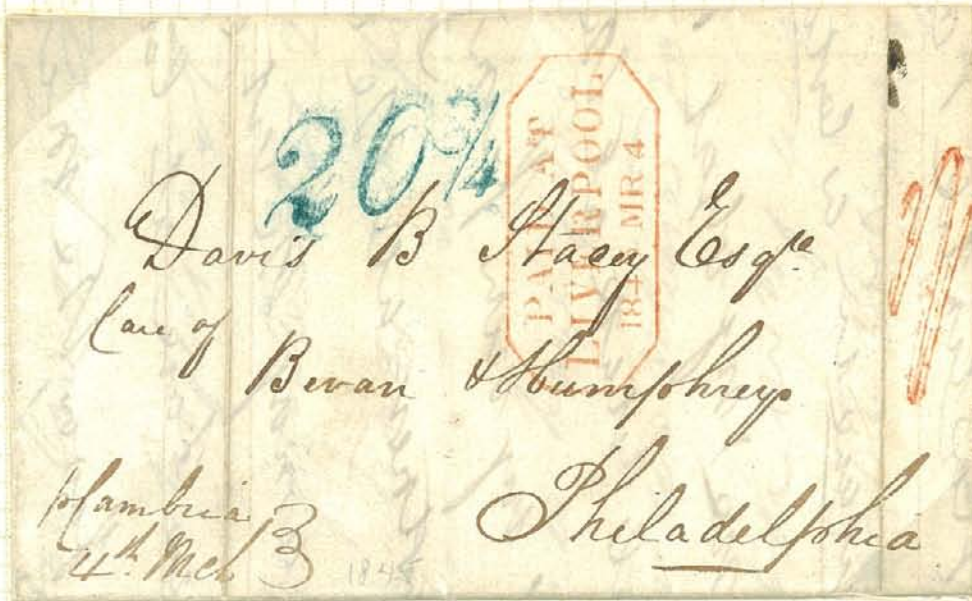 20 3/4
PAID AT
LIVERPOOL
184 MR 4
Davis B Stacey Esqre
Care of
Bevan & Humphreys
Philadelphia
p Cambria
4th Mch
1845